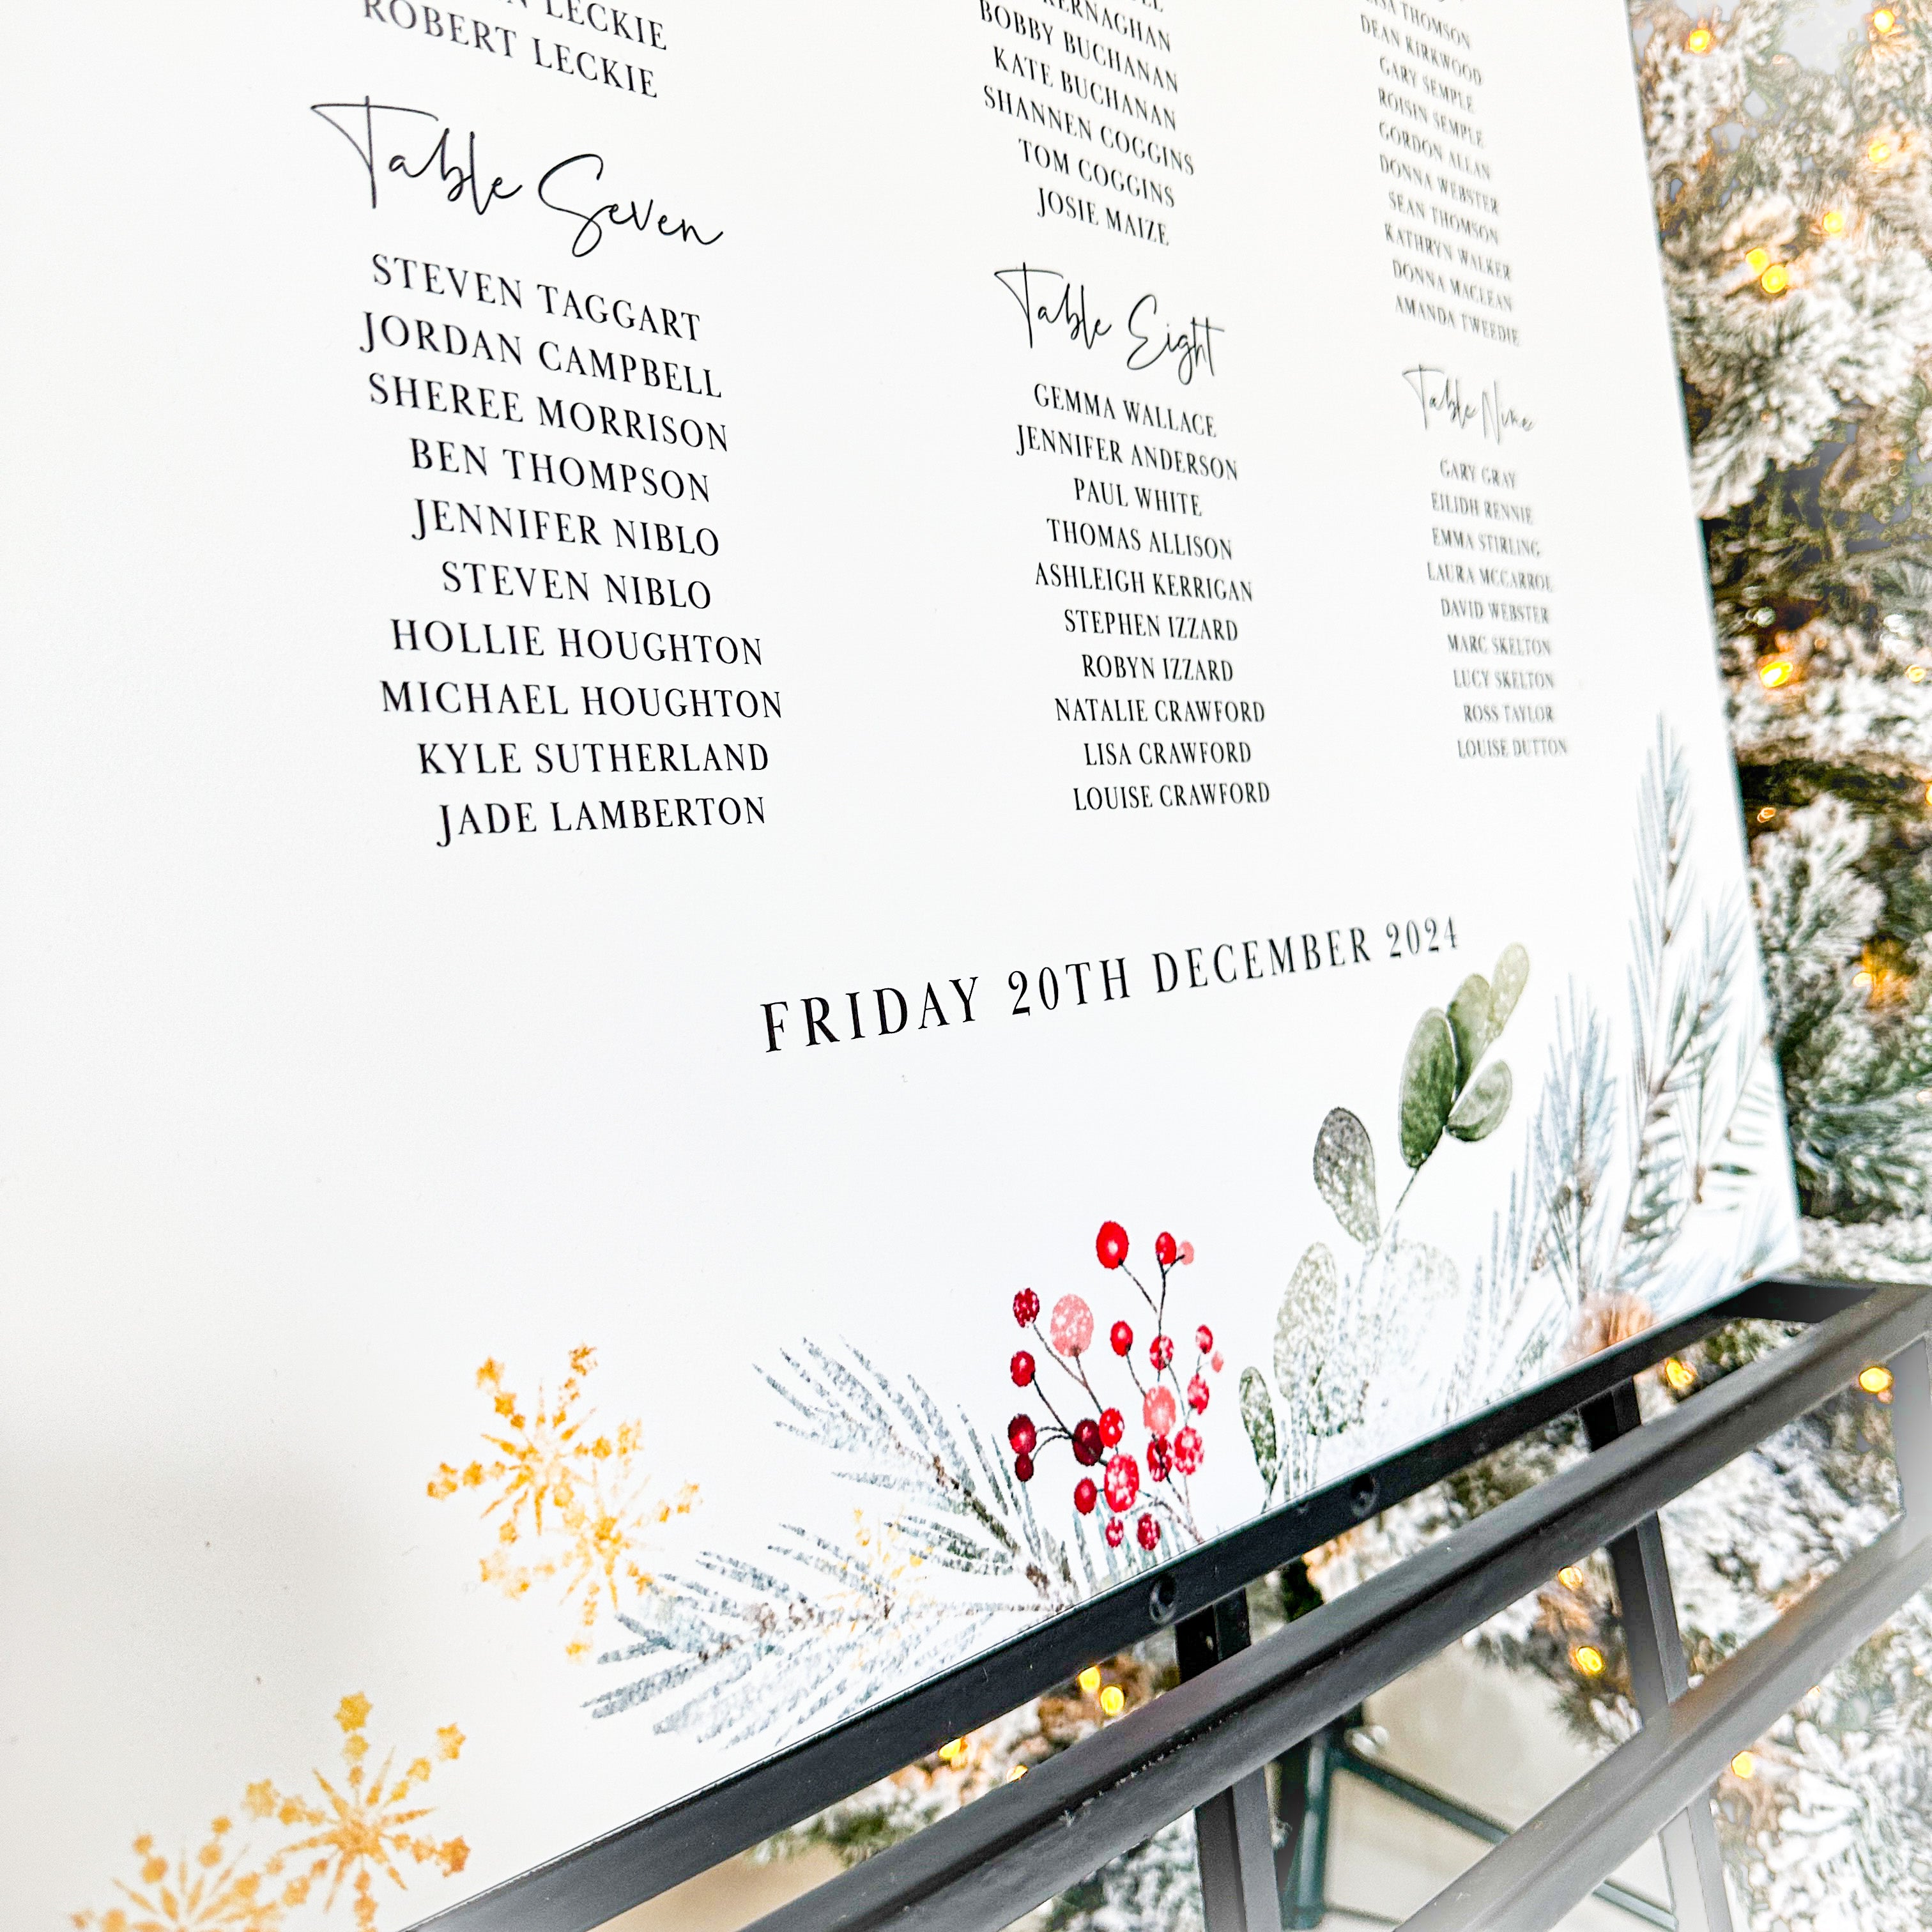 LECKIE
ROBERT LECKIE
Table Seven
STEVEN TAGGART
JORDAN CAMPBELL
SHEREE MORRISON
BEN THOMPSON
JENNIFER NIBLO
STEVEN NIBLO
HOLLIE HOUGHTON
MICHAEL HOUGHTON
KYLE SUTHERLAND
JADE LAMBERTON
KERNAGHAN
BOBBY BUCHANAN
KATE BUCHANAN
SHANNEN COGGINS
TOM COGGINS
JOSIE MAIZE
Table Eight
GEMMA WALLACE
JENNIFER ANDERSON
PAUL WHITE
THOMAS ALLISON
ASHLEIGH KERRIGAN
STEPHEN IZZARD
ROBYN IZZARD
NATALIE CRAWFORD
LISA CRAWFORD
LOUISE CRAWFORD
THOMSON
DEAN KIRKWOOD
GARY SEMPLE
ROISIN SEMPLE
GORDON ALLAN
DONNA WEBSTER
SEAN THOMSON
KATHRYN WALKER
DONNA MACLEAN
AMANDA TWEEDIE
Table Nine
GARY GRAY
EILIDH RENNIE
EMMA STIRLING
LAURA MCCARROL
DAVID WEBSTER
MARC SKELTON
LUCY SKELTON
ROSS TAYLOR
LOUISE DUTTON
FRIDAY 20TH DECEMBER 2024